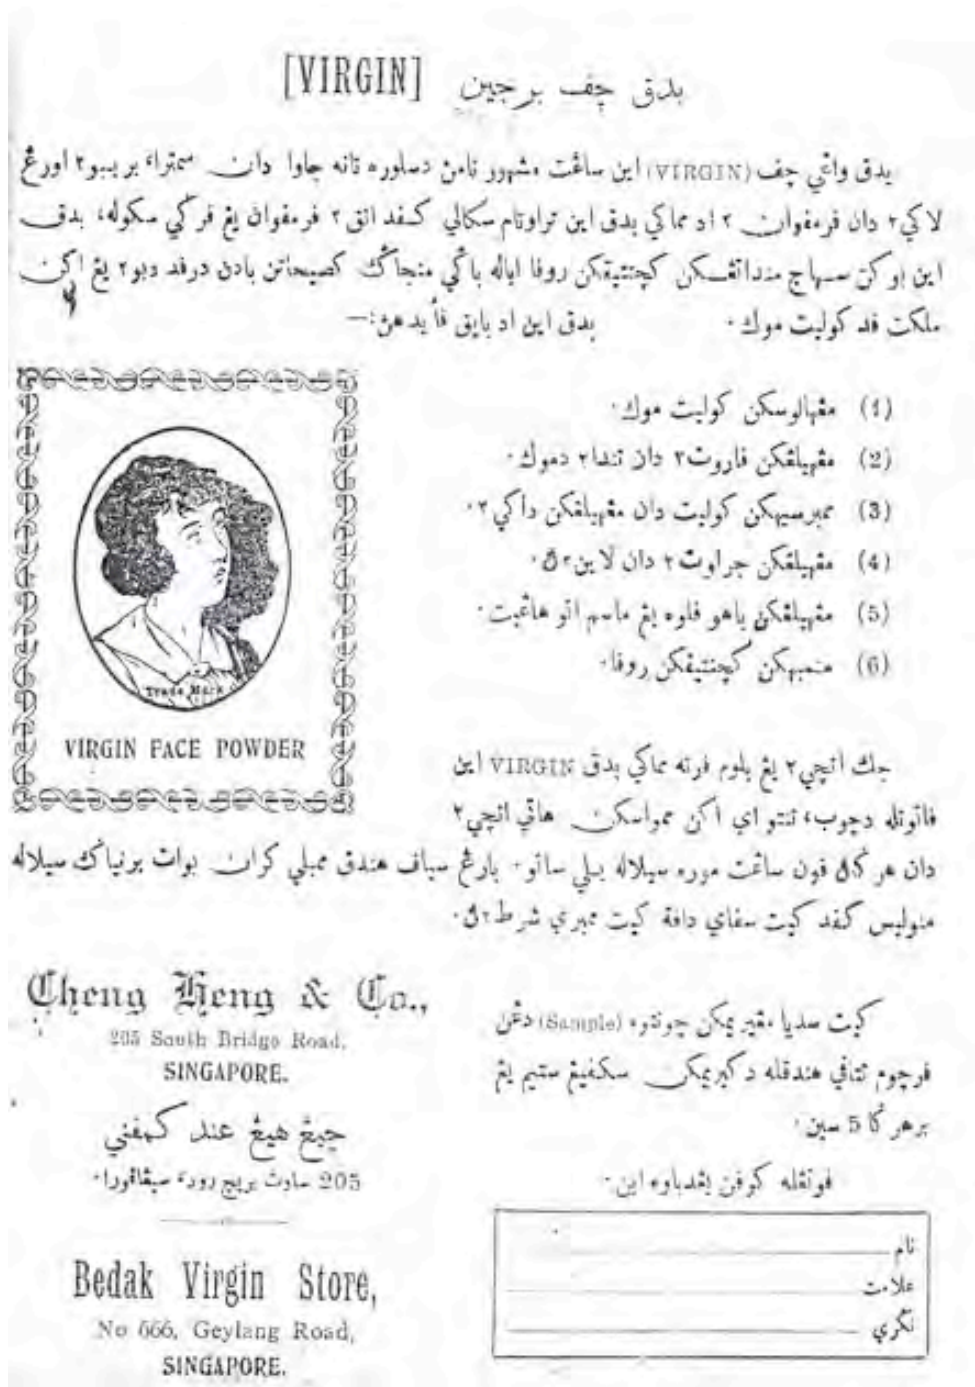 بدق چڤ برجين [VIRGIN]
بدق واڠي چڤ (VIRGIN) اين ساڠت مشهور نامڽ دسلوره تانه جاوا دان سمترا، بريبو٢ اورڠ
لاکي٢ دان ڤرمڤوان٢ اد مماکي بدق اين تراوتام سکالي کڤد انق٢ ڤرمڤوان يڠ ڤرݢي سکوله، بدق
اين بوکن سهاج منداتڠکن کچنتيقکن روڤا اياله باݢي منجاݢ کصيحاتن بادن درڤد دبو٢ يڠ اکن
ملکت ڤد کوليت موك. بدق اين اد بايق فأيدهڽ:—
(1) مڠهالوسکن کوليت موك.
(2) مڠهيلڠکن ڤاروت٢ دان تندا٢ دموك.
(3) ممبرسيهکن کوليت دان مڠهيلڠکن داکي٢.
(4) مڠهيلڠکن جراوت٢ دان لاين٢ڽ.
(5) مڠهيلڠکن باهو ڤلوه يڠ ماسم اتو هاڠيت.
(6) منمبهکن کچنتيقکن روڤا.
Trade Mark
VIRGIN FACE POWDER
جك انچي٢ يڠ بلوم ڤرنه مماکي بدق VIRGIN اين
ڤاتوتله دچوب، تنتو اي اکن ممواسکن هاتي انچي٢
دان هرݢاڽ ڤون ساڠت موره سيلاله بلي ساتو. بارڠ سياڤ هندق ممبلي کران بوات برنياݢ سيلاله
منوليس کڤد کيت سڤاي داڤة کيت ممبري شرط٢ڽ.
Cheng Heng & Co.,
205 South Bridge Road,
SINGAPORE.
چيڠ هيڠ عند کمڤني
205 ساوث بريج رود، سيڠاڤورا.
Bedak Virgin Store,
No 666, Geylang Road,
SINGAPORE.
کيت سديا مڠيريمکن چونتوه (Sample) دڠن
ڤرچوم تتاڤي هندقله دکيريمکن سکڤيڠ ستيم يڠ
برهرݢا 5 سين.
ڤوتڠله کوڤن يڠدباوه اين.
نام
علامت
نݢري